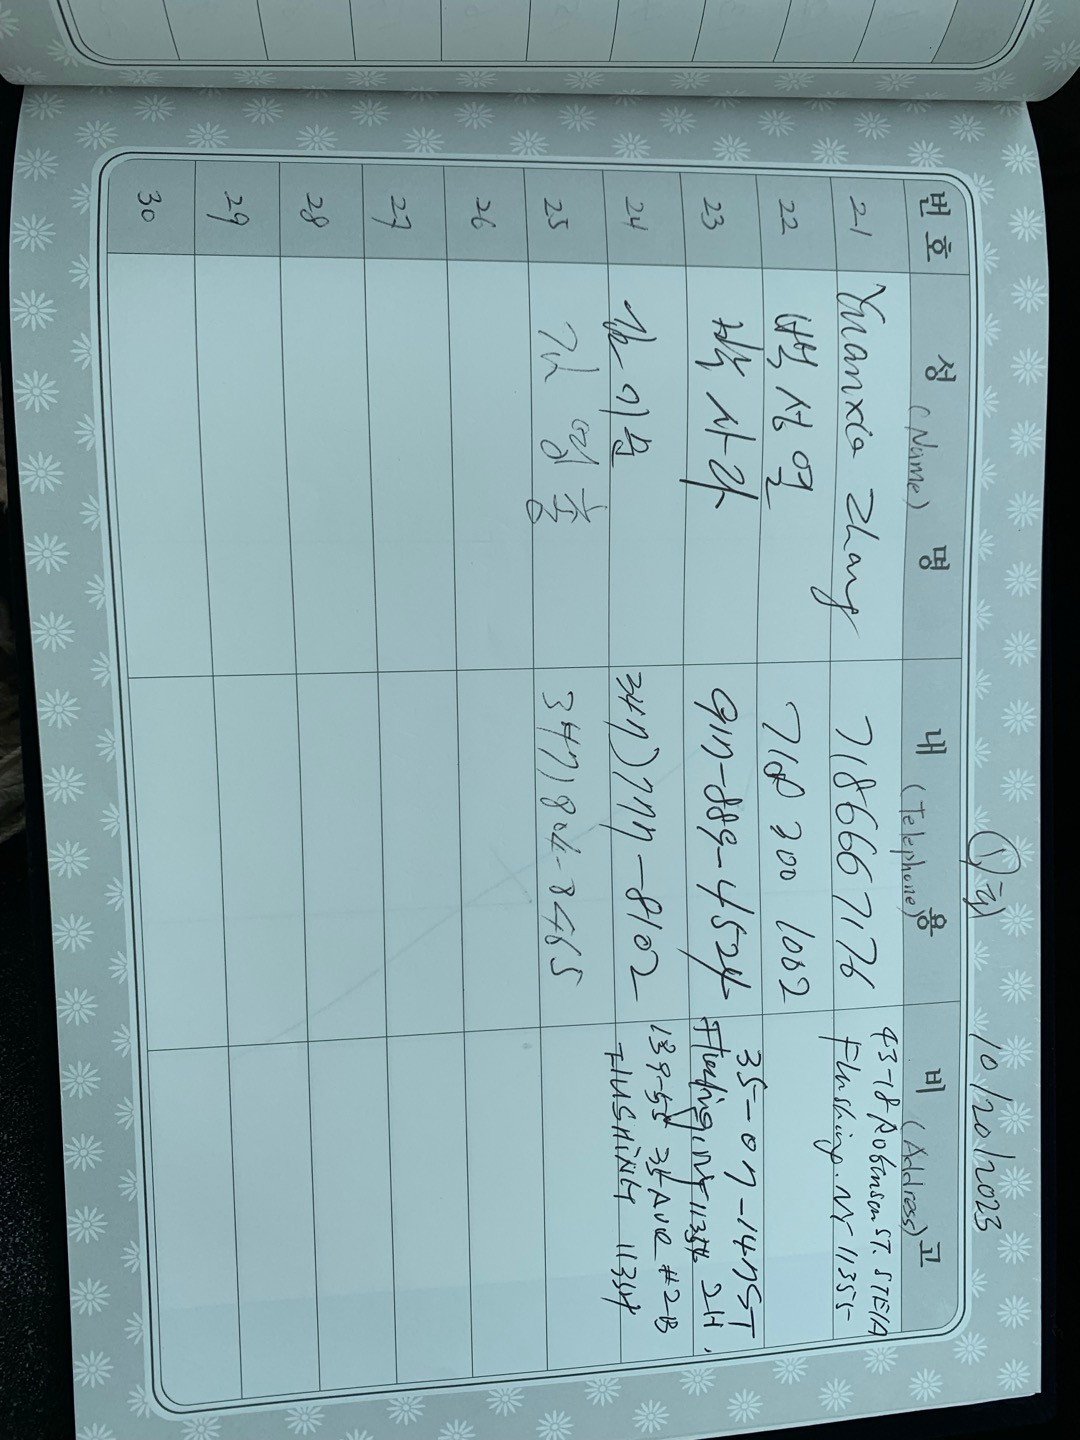 10/20/2023
번호 성 (Name) 명 내 (Telephone) 용 비 (Address) 고
21 Yuanxia Zhang 7186667176 43-18 Robinson ST. STE1A
Flushing. NY 11355
22 백성열 718 300 1002
23 박사라 917-889-4524 35-07-147ST
Flushing, NY 11354 2H.
24 347)777-8102 139-55 35 Ave #2B
FLUSHING 11354
25 김영흥 347)804-8465
26
27
28
29
30